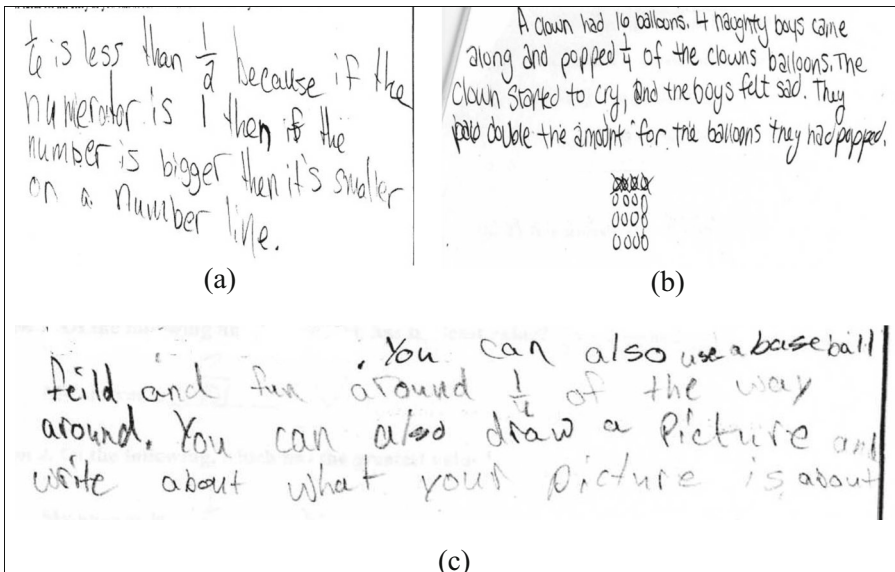 1/6 is less than 1/2 because if the
numerator is 1 then if the
number is bigger then it's smaller
on a number line.
(a)
A clown had 16 balloons. 4 naughty boys came
along and popped 1/4 of the clowns balloons. The
clown started to cry, and the boys felt sad. They
paid double the amount for the balloons they had popped.
(b)
You can also use a baseball
feild and run around 1/4 of the way
around. You can also draw a picture and
write about what your picture is about
(c)